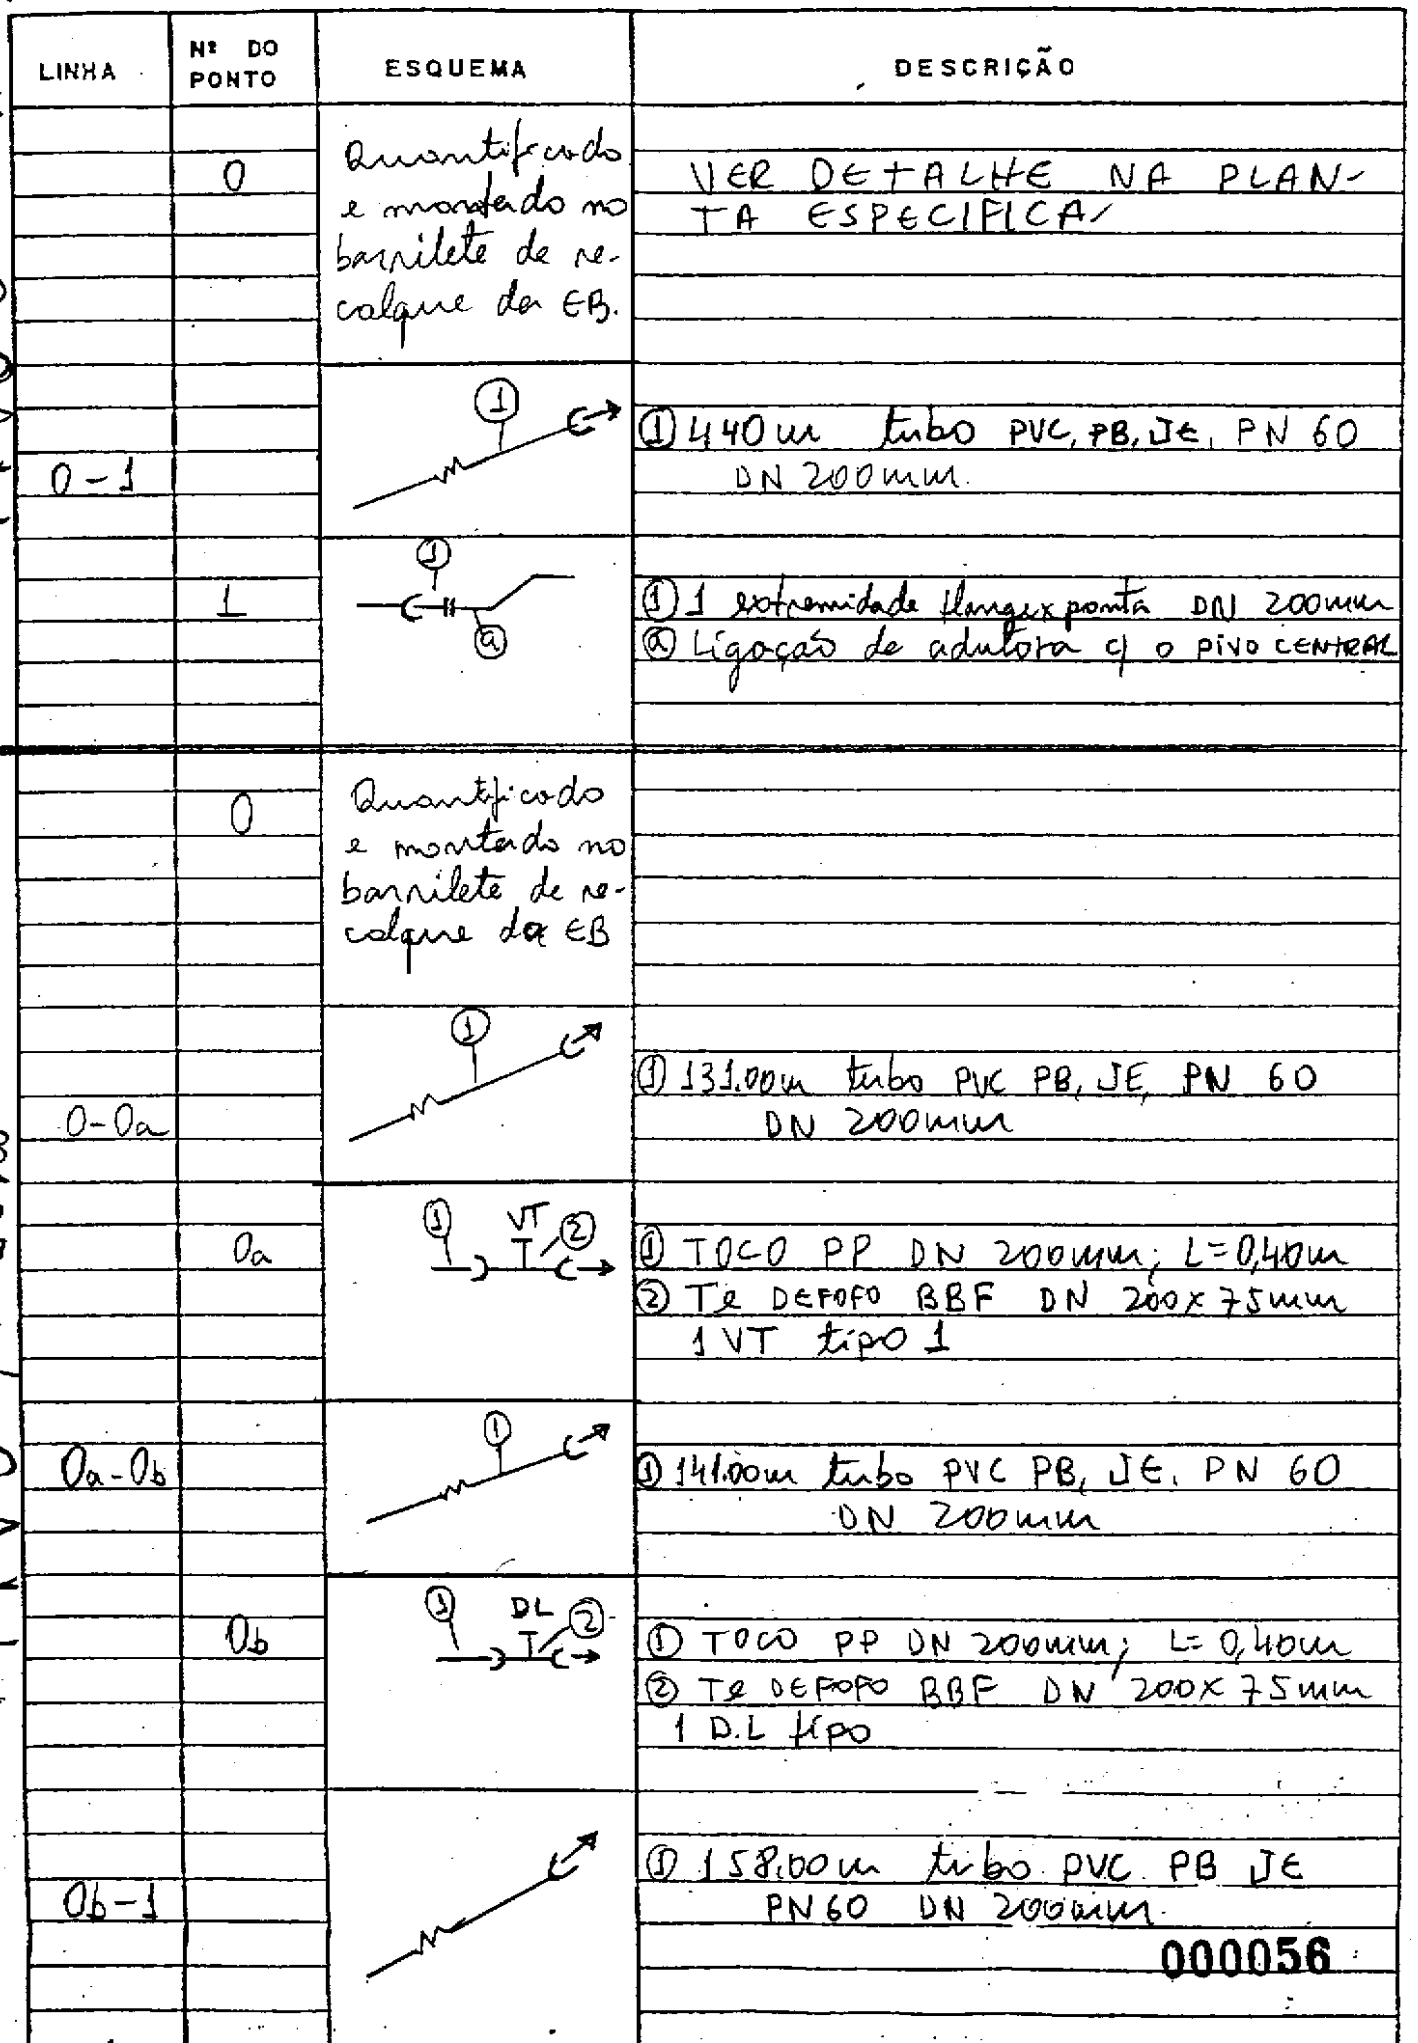 LINHA
Nº DO PONTO
ESQUEMA
DESCRIÇÃO
0
Quantificado
e montado no
barrilete de re-
calque da EB.
VER DETALHE NA PLAN-
TA ESPECIFICA
0-1
1
① 440m tubo PVC, PB, JE, PN 60
DN 200mm.
1
1
a
① 1 extremidade flangexponta DN 200mm
ⓐ Ligação de adutora c/ o PIVO CENTRAL
0
Quantificado
e montado no
barrilete de re-
calque da EB
0-0a
1
① 131.00m tubo PVC PB, JE, PN 60
DN 200mm
0a
1 VT 2
① TOCO PP DN 200mm; L=0,40m
② Te DEFOFO BBF DN 200x75mm
1 VT tipo 1
0a-0b
1
① 141.00m tubo PVC PB, JE, PN 60
DN 200mm
0b
1 DL 2
① TOCO PP DN 200mm; L= 0,40m
② Te DEFOFO BBF DN 200x75mm
1 D.L tipo
0b-1
① 158.00m tubo PVC PB JE
PN60 DN 200mm.
000056